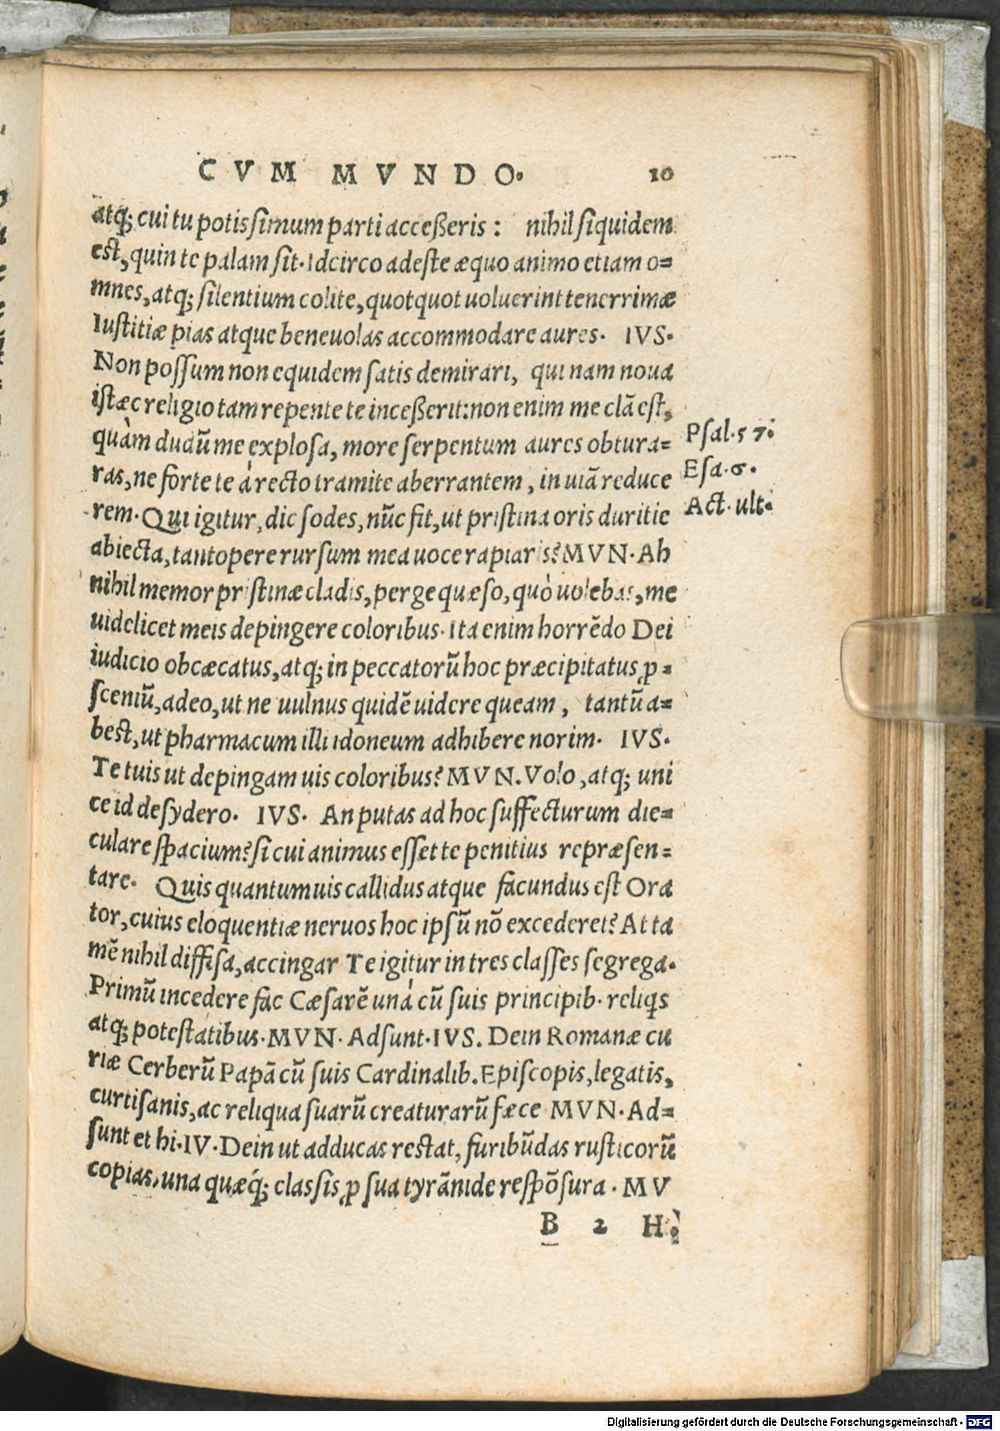 CVM MVNDO. 10
atq; cui tu potissimum parti acceßeris: nihil siquidem
est, quin te palam sit. Idcirco adeste æquo animo etiam o=
mnes, atq; silentium colite, quotquot uoluerint tenerrimæ
Iustitiæ pias atque beneuolas accommodare aures. IVS.
Non possum non equidem satis demirari, qui nam noua
istæc religio tam repente te inceßerit: non enim me clā est,
quàm dudū me explosa, more serpentum aures obtura=
ras, ne forte te à recto tramite aberrantem, in uiā reduce
rem. Qui igitur, dic sodes, nūc fit, ut pristina oris duritie
abiecta, tantopere rursum mea uoce rapiaris? MVN. Ah
nihil memor pristinæ cladis, perge quæso, quò uolebas, me
uidelicet meis depingere coloribus. Ita enim horrēdo Dei
iudicio obcæcatus, atq; in peccatorū hoc præcipitatus, p=
scenіū, adeo, ut ne uulnus quidē uidere queam, tantū a=
best, ut pharmacum illi idoneum adhibere norim. IVS.
Te tuis ut depingam uis coloribus? MVN. Volo, atq; uni
ce id desydero. IVS. An putas ad hoc suffecturum die=
culare spacium? si cui animus esset te penitius repræsen=
tare. Quis quantumuis callidus atque facundus est Ora
tor, cuius eloquentiæ neruos hoc ipsū nō excederet? At ta
mē nihil diffisa, accingar Te igitur in tres classes segrega.
Primū incedere fac Cæsarē unà cū suis principib. reliqs
atq; potestatibus. MVN. Adsunt. IVS. Dein Romanæ cu
riæ Cerberū Papā cū suis Cardinalib. Episcopis, legatis,
curtisanis, ac reliqua suarū creaturarū fæce MVN. Ad=
sunt et hi. IV. Dein ut adducas restat, furibūdas rusticorū
copias, una quæq́; classis, p sua tyrānide respōsura. MV
B 2 H.
Psal. 57.
Esa. 6.
Act. ult.
Digitalisierung gefördert durch die Deutsche Forschungsgemeinschaft - DFG